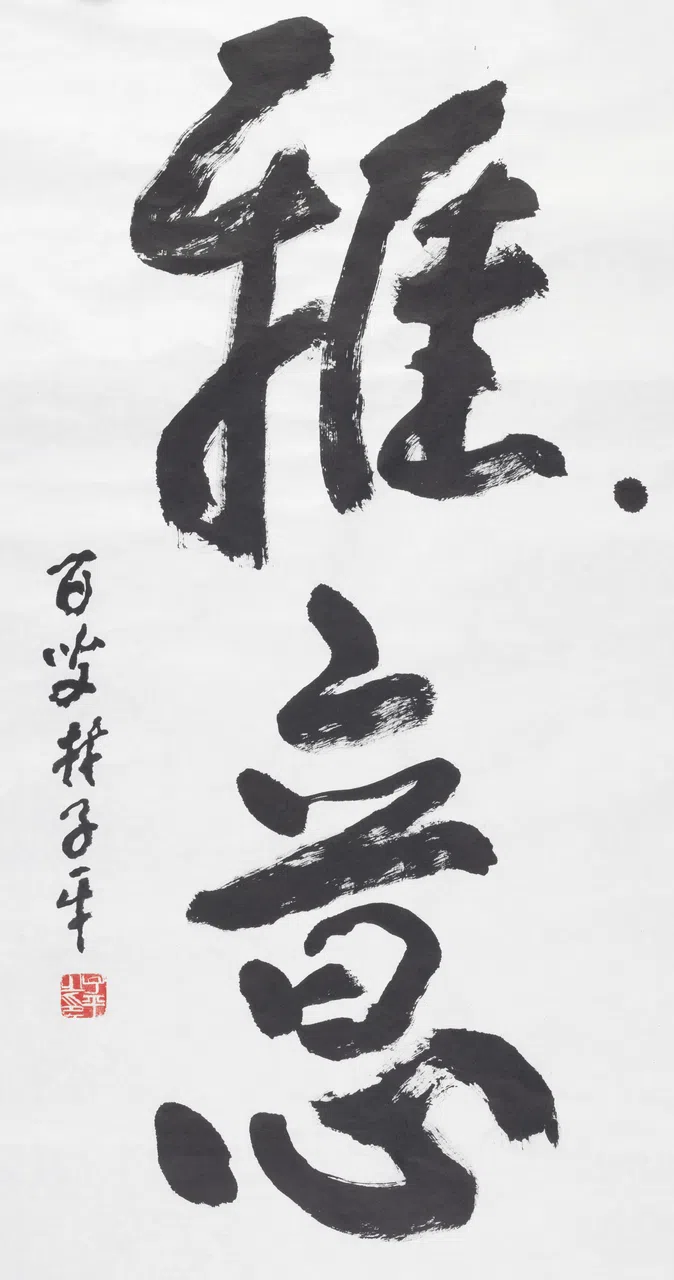 雅意
百叟林子平